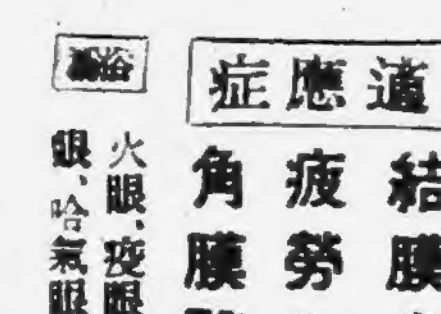 適應症
結膜
疲勞
角膜
浴
火眼、疫眼
眼、哈氣眼